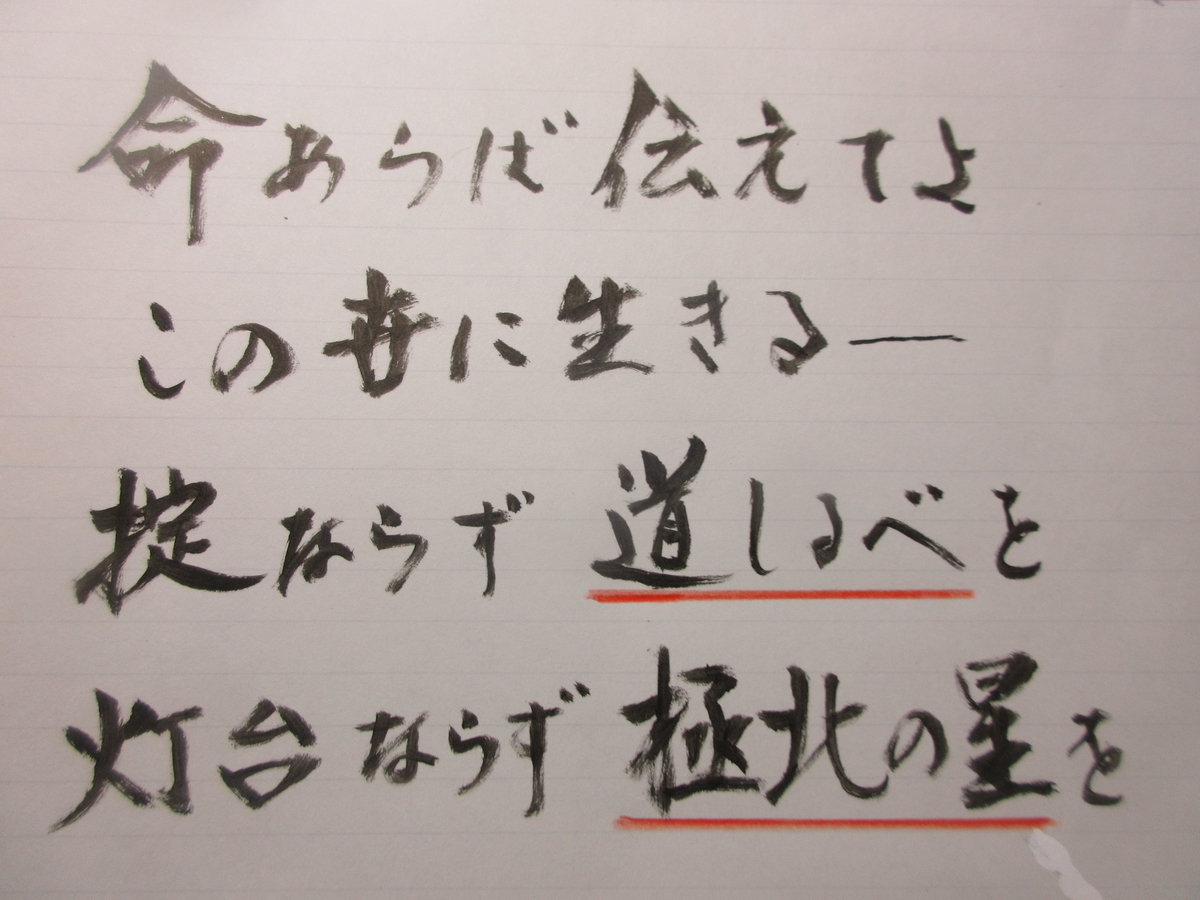 命あらば伝えてよ
この世に生きる―
掟ならず 道しるべを
灯台ならず 極北の星を